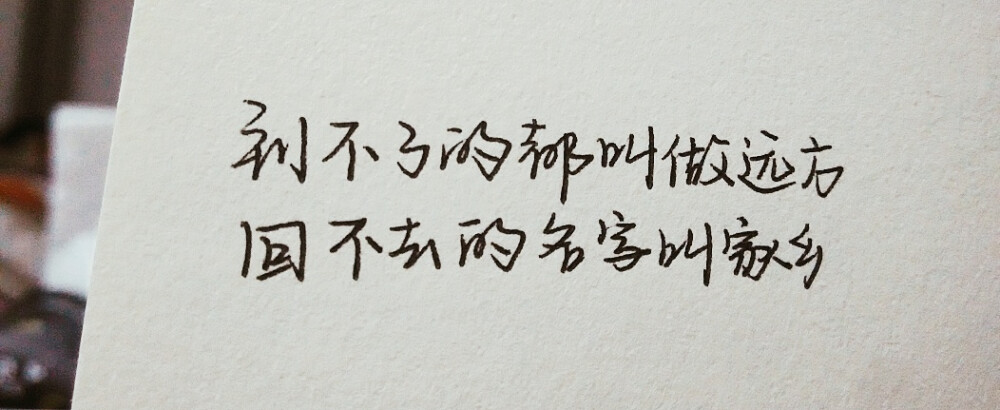 到不了的都叫做远方
回不去的名字叫家乡